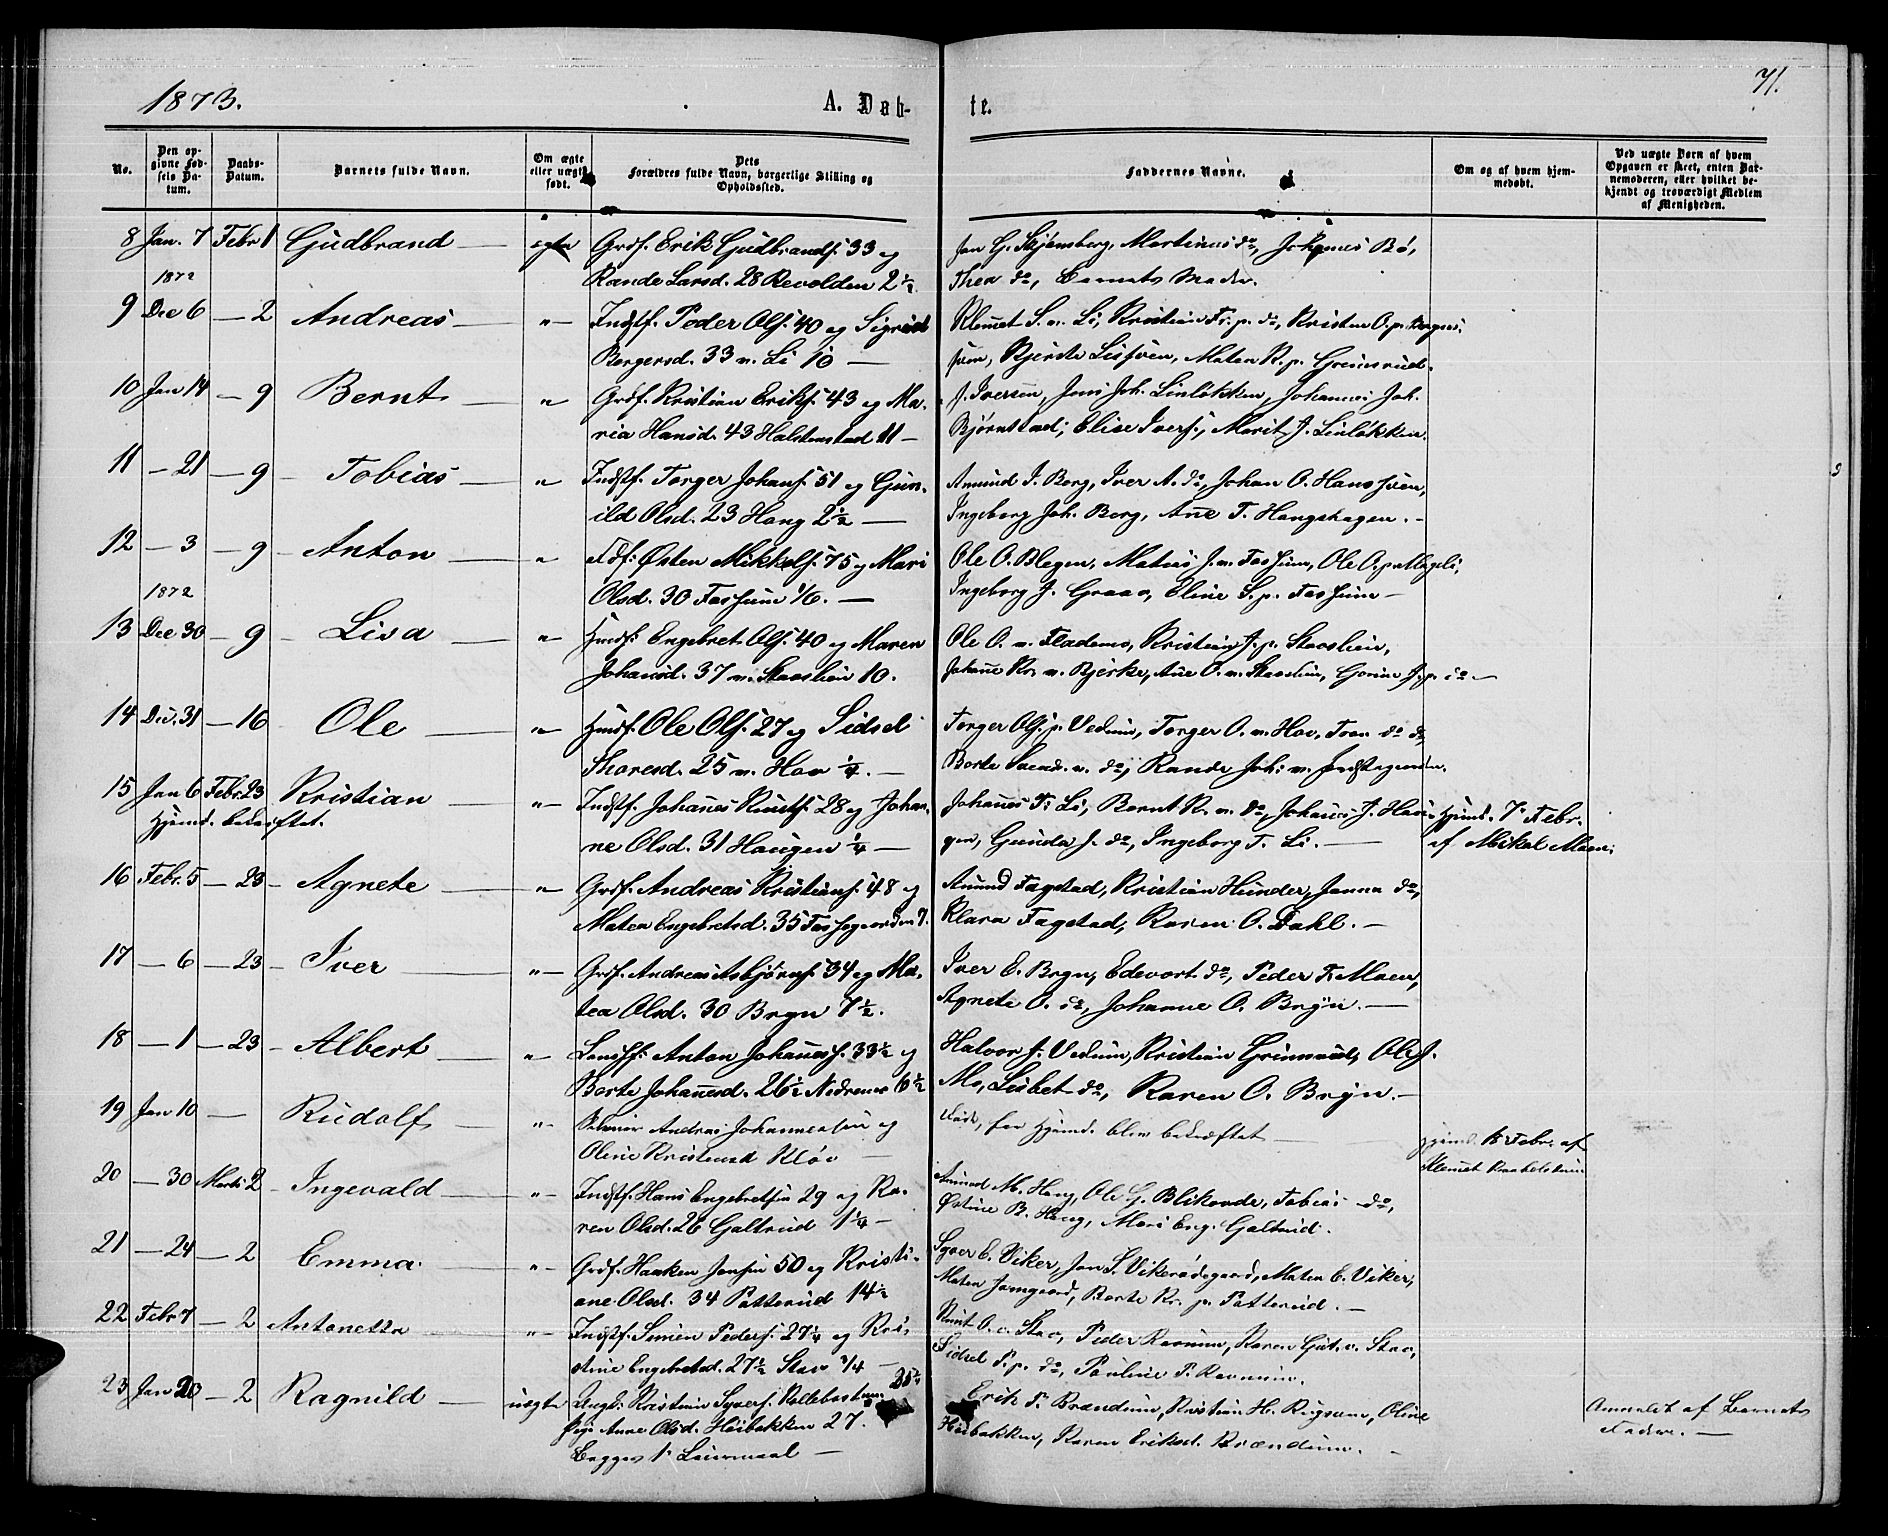 1873. A. Døb-
te. 71.
No. Den opgivne Fødsels Datum. Daabs-Datum. Barnets fulde Navn. Om ægte eller uægte født. Dets Forældres fulde Navn, borgerlige Stilling og Opholdssted.
Faddernes Navne. Om og af hvem hjemmedøbt. Ved uægte Børn af hvem Opgaven er skeet, enten Barnemoderen, eller hvilket bekjendt og troværdigt Medlem af Menigheden.
8 Jan. 7 Febr 1 Gudbrand ægte Grdf. Erik Gudbrandf. 33 og
Rande Larsd. 28 Revolden 2 1/2
Jon G. Skjønsberg, Martinus do, Johannes Bø,
Thea do, Barnets Moder.
1872
9 Dec 6 — 2 Andreas — " — Indstf. Peder Olf. 40 og Sigrid
Borgersd. 33 n. Li 10 —
Klemet S. n. Li, Kristian Fr. p. do, Kristen O. p.
Maten K. p. Grimsrud.
10 Jan 14 — 9 Bernt — " Grdf. Kristian Erikf. 43 og Ma-
ria Hansd. 43 Halstenstad 11 —
J. Iversen, Jens Joh. Linløkken, Johannes Joh.
Bjørnstad, Elise Iversf., Marit J. Linløkken.
11 — 21 — 9 — Tobias — " Indstf. Torger Johanf. 51 og Gun-
ild Olsd. 23 Haug 2 1/2 —
Amund J. Berg, Iver A. do, Johan O. Hansf
Ingeborg Joh. Berg, Ane T. Haugshagen. —
12 — 3 — 9 — Anton — " Østen Mikkelf. 75 og Mari
Olsd. 30 Fossum 1/6. —
Ole O. Blegen, Matias J. n. Fossum, Ole O.
Ingeborg J. Graae, Eline S. p. Fossum —
1872
13 Dec 30 — 9 — Lisa — " Husf. Engebret Olf. 40 og Maren
Johansd. 37 n. Staaslien 10.
Ole O. n. Fladem, Kristian J. p. Staaslien,
Johanne Kr. n. Bjerke, Ane O. n. Staaslien, J. p. do —
14 Dec. 31 — 16 Ole — " Husf. Ole Olf. 27 og Sidsel
Thoresd. 25 n. Hov 1/4. —
Torger Olf. p. Vedum, Torger O. n. Hov, do
Borte do, Rande Joh.
15 Jan 6 Febr. 23 Kristian — " — Indstf. Johanes Knutf. 28 og Johan-
Hjemd. bekræftet.
ne Olsd. 31 Haugen 1/4 —
Johanes Li, Bernt K. n. do, Johanes J. Hau-
gen, Gunda J. do, Ingeborg T. Li. —
Hjemd. 7 Febr.
af Mikal Moen.
16 Febr. 5 — 23 — Agnete — " Grdf. Andreas Kristianf. 48 og
Maten Engebretsd. 35 7.
Amund Fagstad, Kristian Hunder, Janna do,
Klara Fagstad, Karen O. Dahl. —
17 — 6 — 23 — Iver — " — Grdf. Andreas Asbjørnf. 34 og Ma-
tea Olsd. 30 Bryn 7 1/2.
Iver E. Bryn, Edevart do, Peder F. Moen,
Agnete O. do, Johanne O. Bryn. —
18 — 1 — 23 — Albert — " Anton Johanesf. 33 1/2 og
Borte Johanesd. 26 1/2 Nedremo 6 1/2
Halvor J. Vedum, Kristian Grimsrud, Ole J.
Mo, Lisbet do, Karen O. Bryn. —
19 Jan 10 — Rudolf — " — Andreas Johannesen og
Oline Kristensd Kløv —
Død, før Hjemd. blev bekræftet —
Hjemd. Febr. af
Klemet
20 — 30 Marts 2 — Ingevald — " — Indstf. Hans Engebretsen 29 og Ka-
ren Olsd. 26 Galtrud 1 1/4 —
Amund M. Haug, Ole G. Blikovde, Tobias do,
Østine B. Haug, Mari Eng. Galtrud.
21 — 24 — 2 Emma. — " — Grdf. Haaken Jonsen 50 og Kristi-
ane Olsd. 34 Patterud 14 1/2
Syver E. Viker, Jon S. Vikerødegaard, Maten E. Viker,
Maten Jamgaard, Borte Kr. p. Patterud. —
22 Febr 7 — 2 Antonette — " — Indstf. Simen Pederf. 27 1/4 og Kri-
stine Engebretsd. 27 1/2 Stav 3/4 —
Knut O. n. Stav, Peder Ravnum, Karen Gut. n. Stav,
Sidsel P. p. do, Pauline P. Ravnum.
23 Jan 20 — 2 Ragnild — uægte Ungk. Kristian Syverf. 25 1/4
Pige Anne Olsd. Høibakken 27.
Begges 1. Leiermaal —
Erik P. Brændum, Kristian H. Oline
Høibakken, Karen Eriksd. Brændum. —
Anmeldt af Barnets
Fader. —